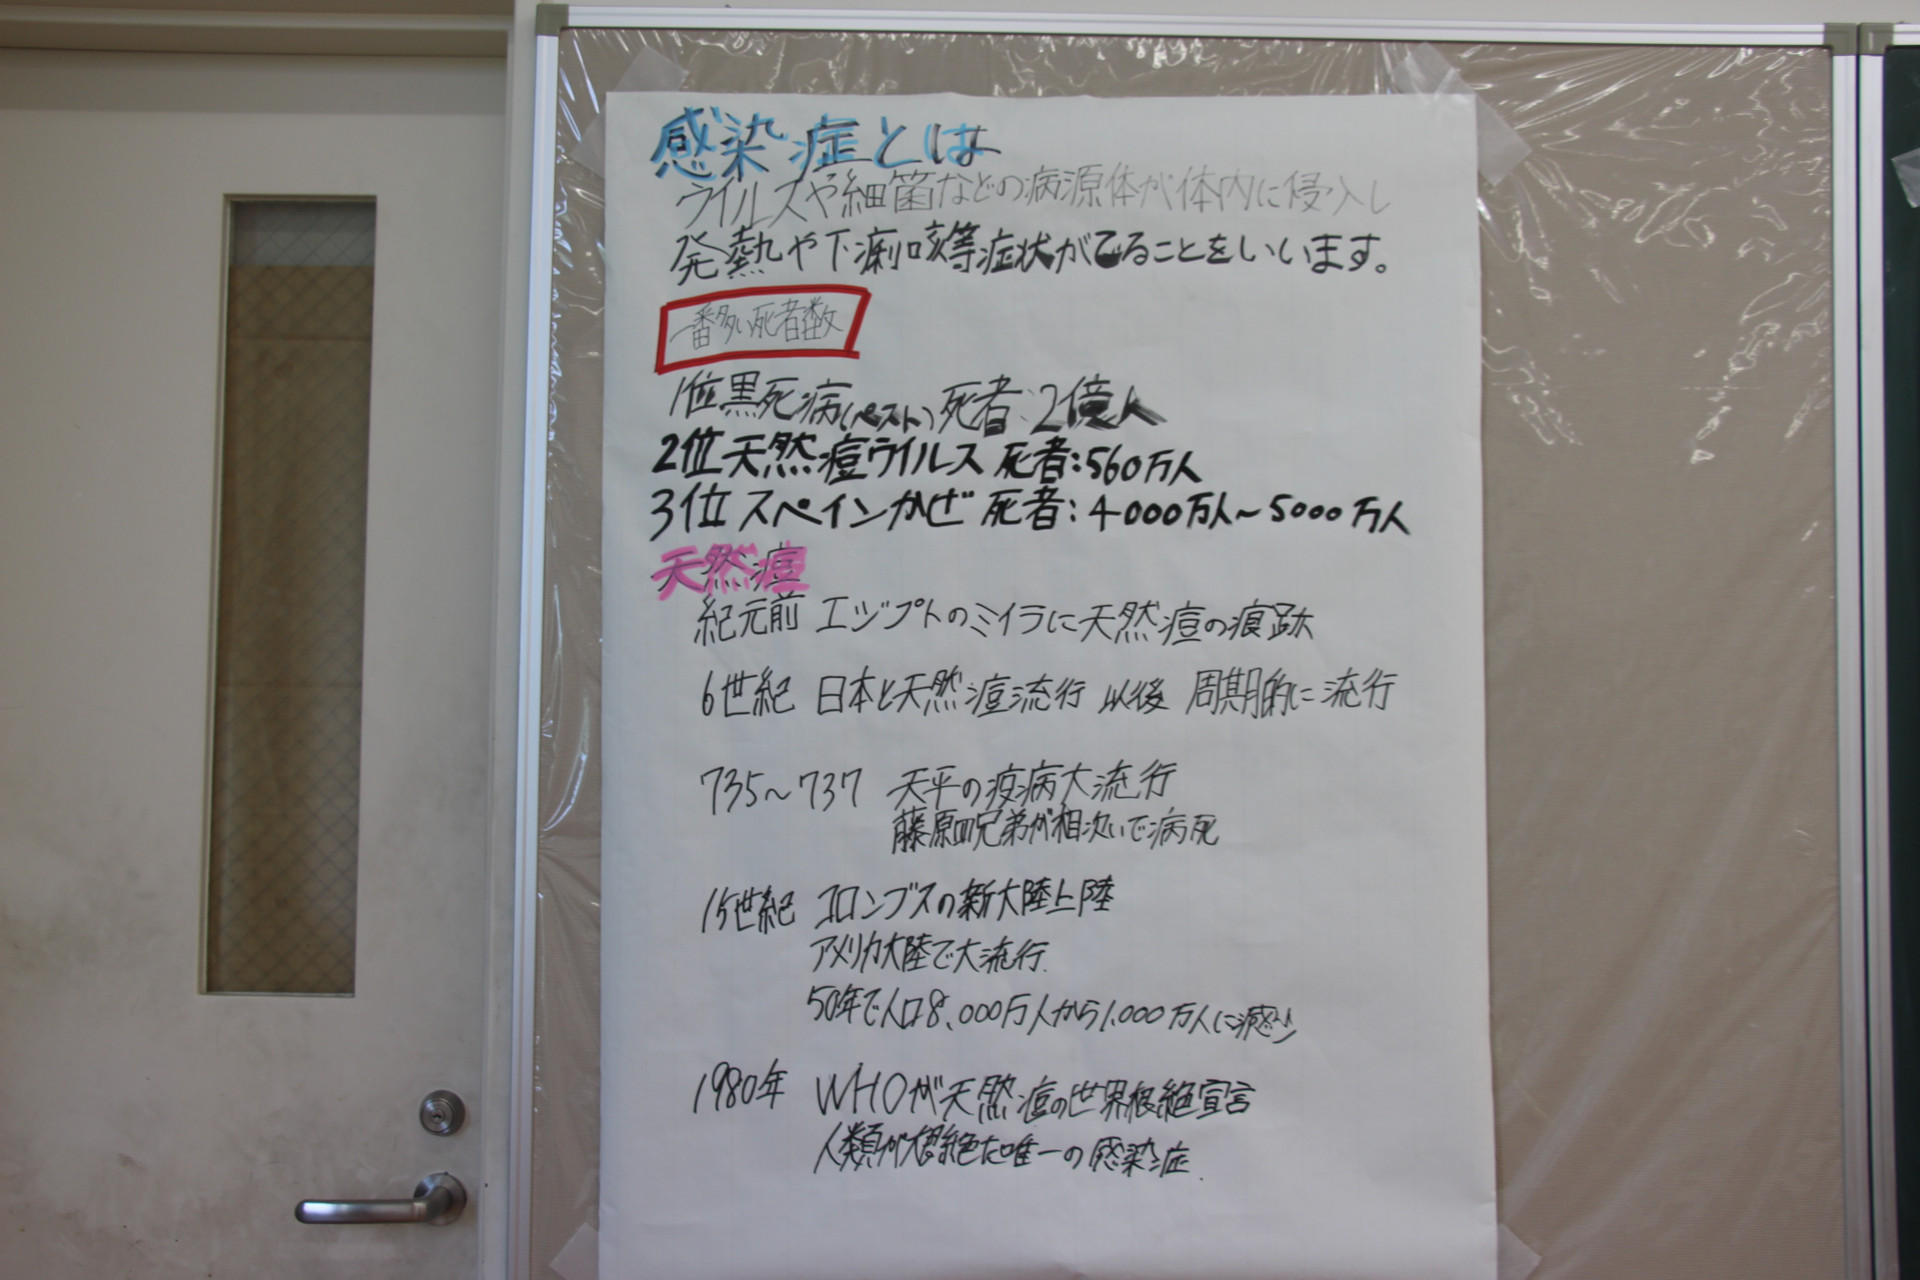 感染症とは
ウイルスや細菌などの病源体が体内に侵入し
発熱や下痢咳等症状がでることをいいます。
一番多い死者数
1位黒死病(ペスト)死者:2億人
2位天然痘ウイルス 死者:560万人
3位スペインかぜ 死者:4000万人~5000万人
天然痘
紀元前 エジプトのミイラに天然痘の痕跡
6世紀 日本と天然痘流行 以後 周期的に流行
735~737 天平の疫病大流行
藤原四兄弟が相次いで病死
15世紀 コロンブスの新大陸上陸
アメリカ大陸で大流行
50年で人口8,000万人から1,000万人に減少
1980年 WHOが天然痘の世界根絶宣言
人類が根絶た唯一の感染症